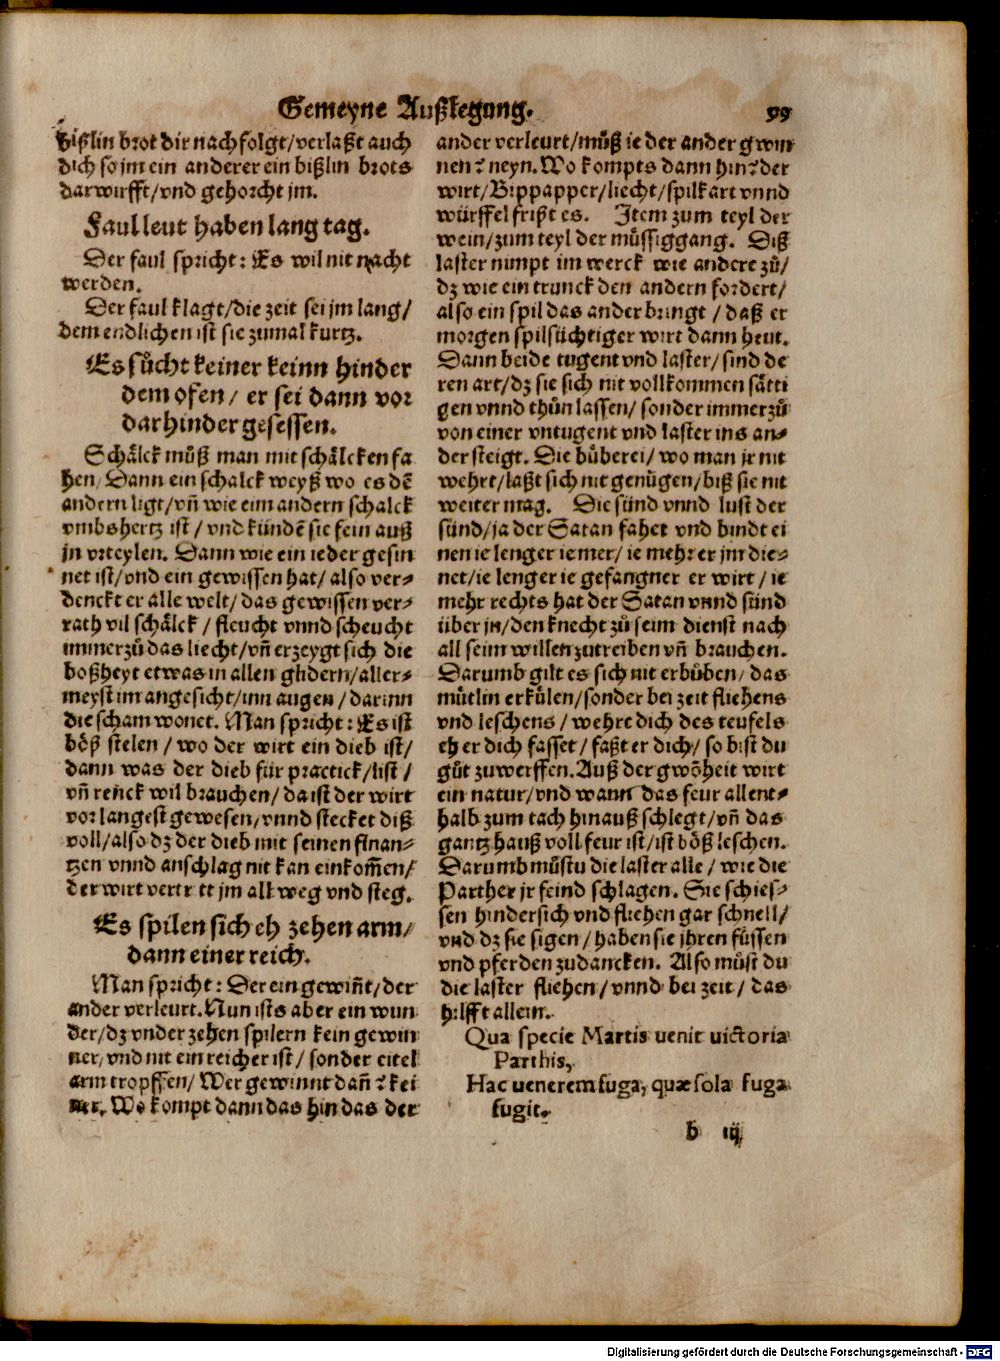 Gemeyne Außlegung. 99
bißlin brot dir nachfolgt/verlaßt auch
dich so jm ein anderer ein bißlin brots
darwirfft/vnd gehorcht jm.
Faul leut haben lang tag.
Der faul spricht: Es wil nit nacht
werden.
Der faul klagt/die zeit sei jm lang/
dem endlichen ist sie zumal kurtz.
Es sůcht keiner keinn hinder
dem ofen/ er sei dann vor
darhinder gesessen.
Schälck můß man mit schälcken fa
hen/ Dann ein schalck weyß wo es dē
andern ligt/vn̄ wie eim andern schalck
vmbs hertz ist/ vnd kündē sie fein auß
jn vrteylen. Dann wie ein ieder gesin
net ist/vnd ein gewissen hat/ also ver⸗
denckt er alle welt/ das gewissen ver⸗
rath vil schälck / fleucht vnnd scheucht
immerzů das liecht/vn̄ erzeygt sich die
boßheyt etwas in allen glidern/aller⸗
meyst im angesicht/inn augen/ darinn
die scham wonet. Man spricht: Es ist
böß stelen / wo der wirt ein dieb ist/
dann was der dieb für practick/list/
vn̄ renck wil brauchen/ da ist der wirt
vor langest gewesen/vnnd stecket diß
voll/also dz der dieb mit seinen finan⸗
tzen vnnd anschlag nit kan einkom̄en/
der wirt vertritt jm all weg vnd steg.
Es spilen sich eh zehen arm/
dann einer reich.
Man spricht: Der ein gewin̄t/der
ander verleurt. Nun ists aber ein wun
der/dz vnder zehen spilern kein gewin
ner/vnd nit ein reicher ist/ sonder eitel
arm tropffen/ Wer gewinnt dan̄? kei
ner. Wo kompt dann das hin das der
ander verleurt/můß ie der ander gwin
nen? neyn. Wo kompts dann hin? der
wirt/Bippapper/liecht/spilkart vnnd
würffel frißt es. Item zum teyl der
wein/zum teyl der müssiggang. Diß
laster nimpt im werck wie andere zů/
dz wie ein trunck den andern fordert/
also ein spil das ander bringt / daß er
morgen spilsüchtiger wirt dann heut.
Dann beide tugent vnd laster/ sind de
ren art/dz sie sich nit vollkommen sätti
gen vnnd thůn lassen/ sonder immerzů
von einer vntugent vnd laster ins an⸗
der steigt. Die bůberei/ wo man jr nit
wehrt/laßt sich nit genügen/biß sie nit
weiter mag. Die sünd vnnd lust der
sünd/ja der Satan fahet vnd bindt ei
nen ie lenger ie mer/ ie mehr er jm die⸗
net/ie lenger ie gefangner er wirt / ie
mehr rechts hat der Satan vnnd sünd
über jn/den knecht zů seim dienst nach
all seim willen zutreiben vn̄ brauchen.
Darumb gilt es sich nit erbůben/ das
můtlin erkülen/sonder bei zeit fliehens
vnd leschens / wehre dich des teufels
eh er dich fasset/ faßt er dich/ so bist du
gůt zuwerffen. Auß der gwōheit wirt
ein natur/vnd wann das feur allent⸗
halb zum tach hinauß schlegt/vn̄ das
gantz hauß voll feur ist/ist böß leschen.
Darumb můstu die laster alle / wie die
Parther jr feind schlagen. Sie schies⸗
sen hindersich vnd fliehen gar schnell/
vnd dz sie sigen / haben sie ihren füssen
vnd pferden zudancken. Also můst du
die laster fliehen/vnnd bei zeit/ das
hilfft allein.
Qua specie Martis uenit uictoria
Parthis,
Hac uenerem fuga, quæ sola fuga
fugit.
b iij
Digitalisierung gefördert durch die Deutsche Forschungsgemeinschaft - DFG